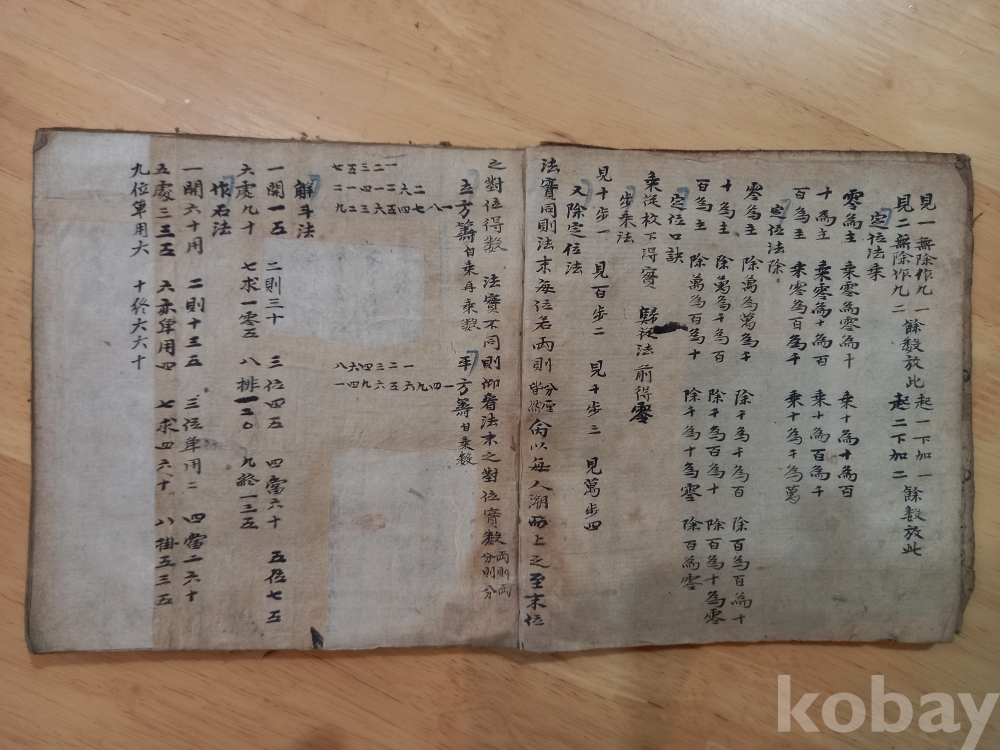 見一無除作九一 餘數放此 起一下加一
見二無除作九二 起二下加二 餘數放此
定位法乘
零為主 乘零為零為十 乘十為十為百
十為主 乘零為十為百 乘十為百為千
百為主 乘零為百為千 乘十為千為萬
定位法除
零為主 除萬為萬為千 除千為千為百 除百為百為十
十為主 除萬為千為百 除千為百為十 除百為十為零
百為主 除萬為百為十 除千為十為零 除百為零
定位口訣
乘從校下得實 歸從法前得零
步乘法
見十步一 見百步二 見千步三 見萬步四
又除定位法
法實同則法末每位若兩則分厘皆然 以每人溯而上之至末位
之對位得數 法實不同則仰看法末之對位實數兩則兩分則分
立方籌自乘再乘數 平方籌自乘數
一八七四六五三二九
二六二一四一二
一二三五七
一四九六五六九四一
一二三四六八
解斗法
一開一五 二則三十 三位四五 四當六十 五位七五
六處九十 七求一零五 八排一二〇 九終一三五
作石法
一開六十用 二則十三五 三位單用二 四當二六十
五處三三五 六亦單用四 七求四六十 八掛五三五
九位單用大 十終大大十
kobay